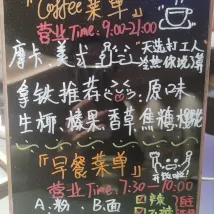 "Coffee菜单"
营业Time:9:00-21:00
摩卡、美式
天选打工人
冷热休说了算
拿铁推荐 原味
生椰、榛果、香草、焦糖、
"早餐菜单"
营业Time:7:30-10:00
开动啦!
A、粉、B、面